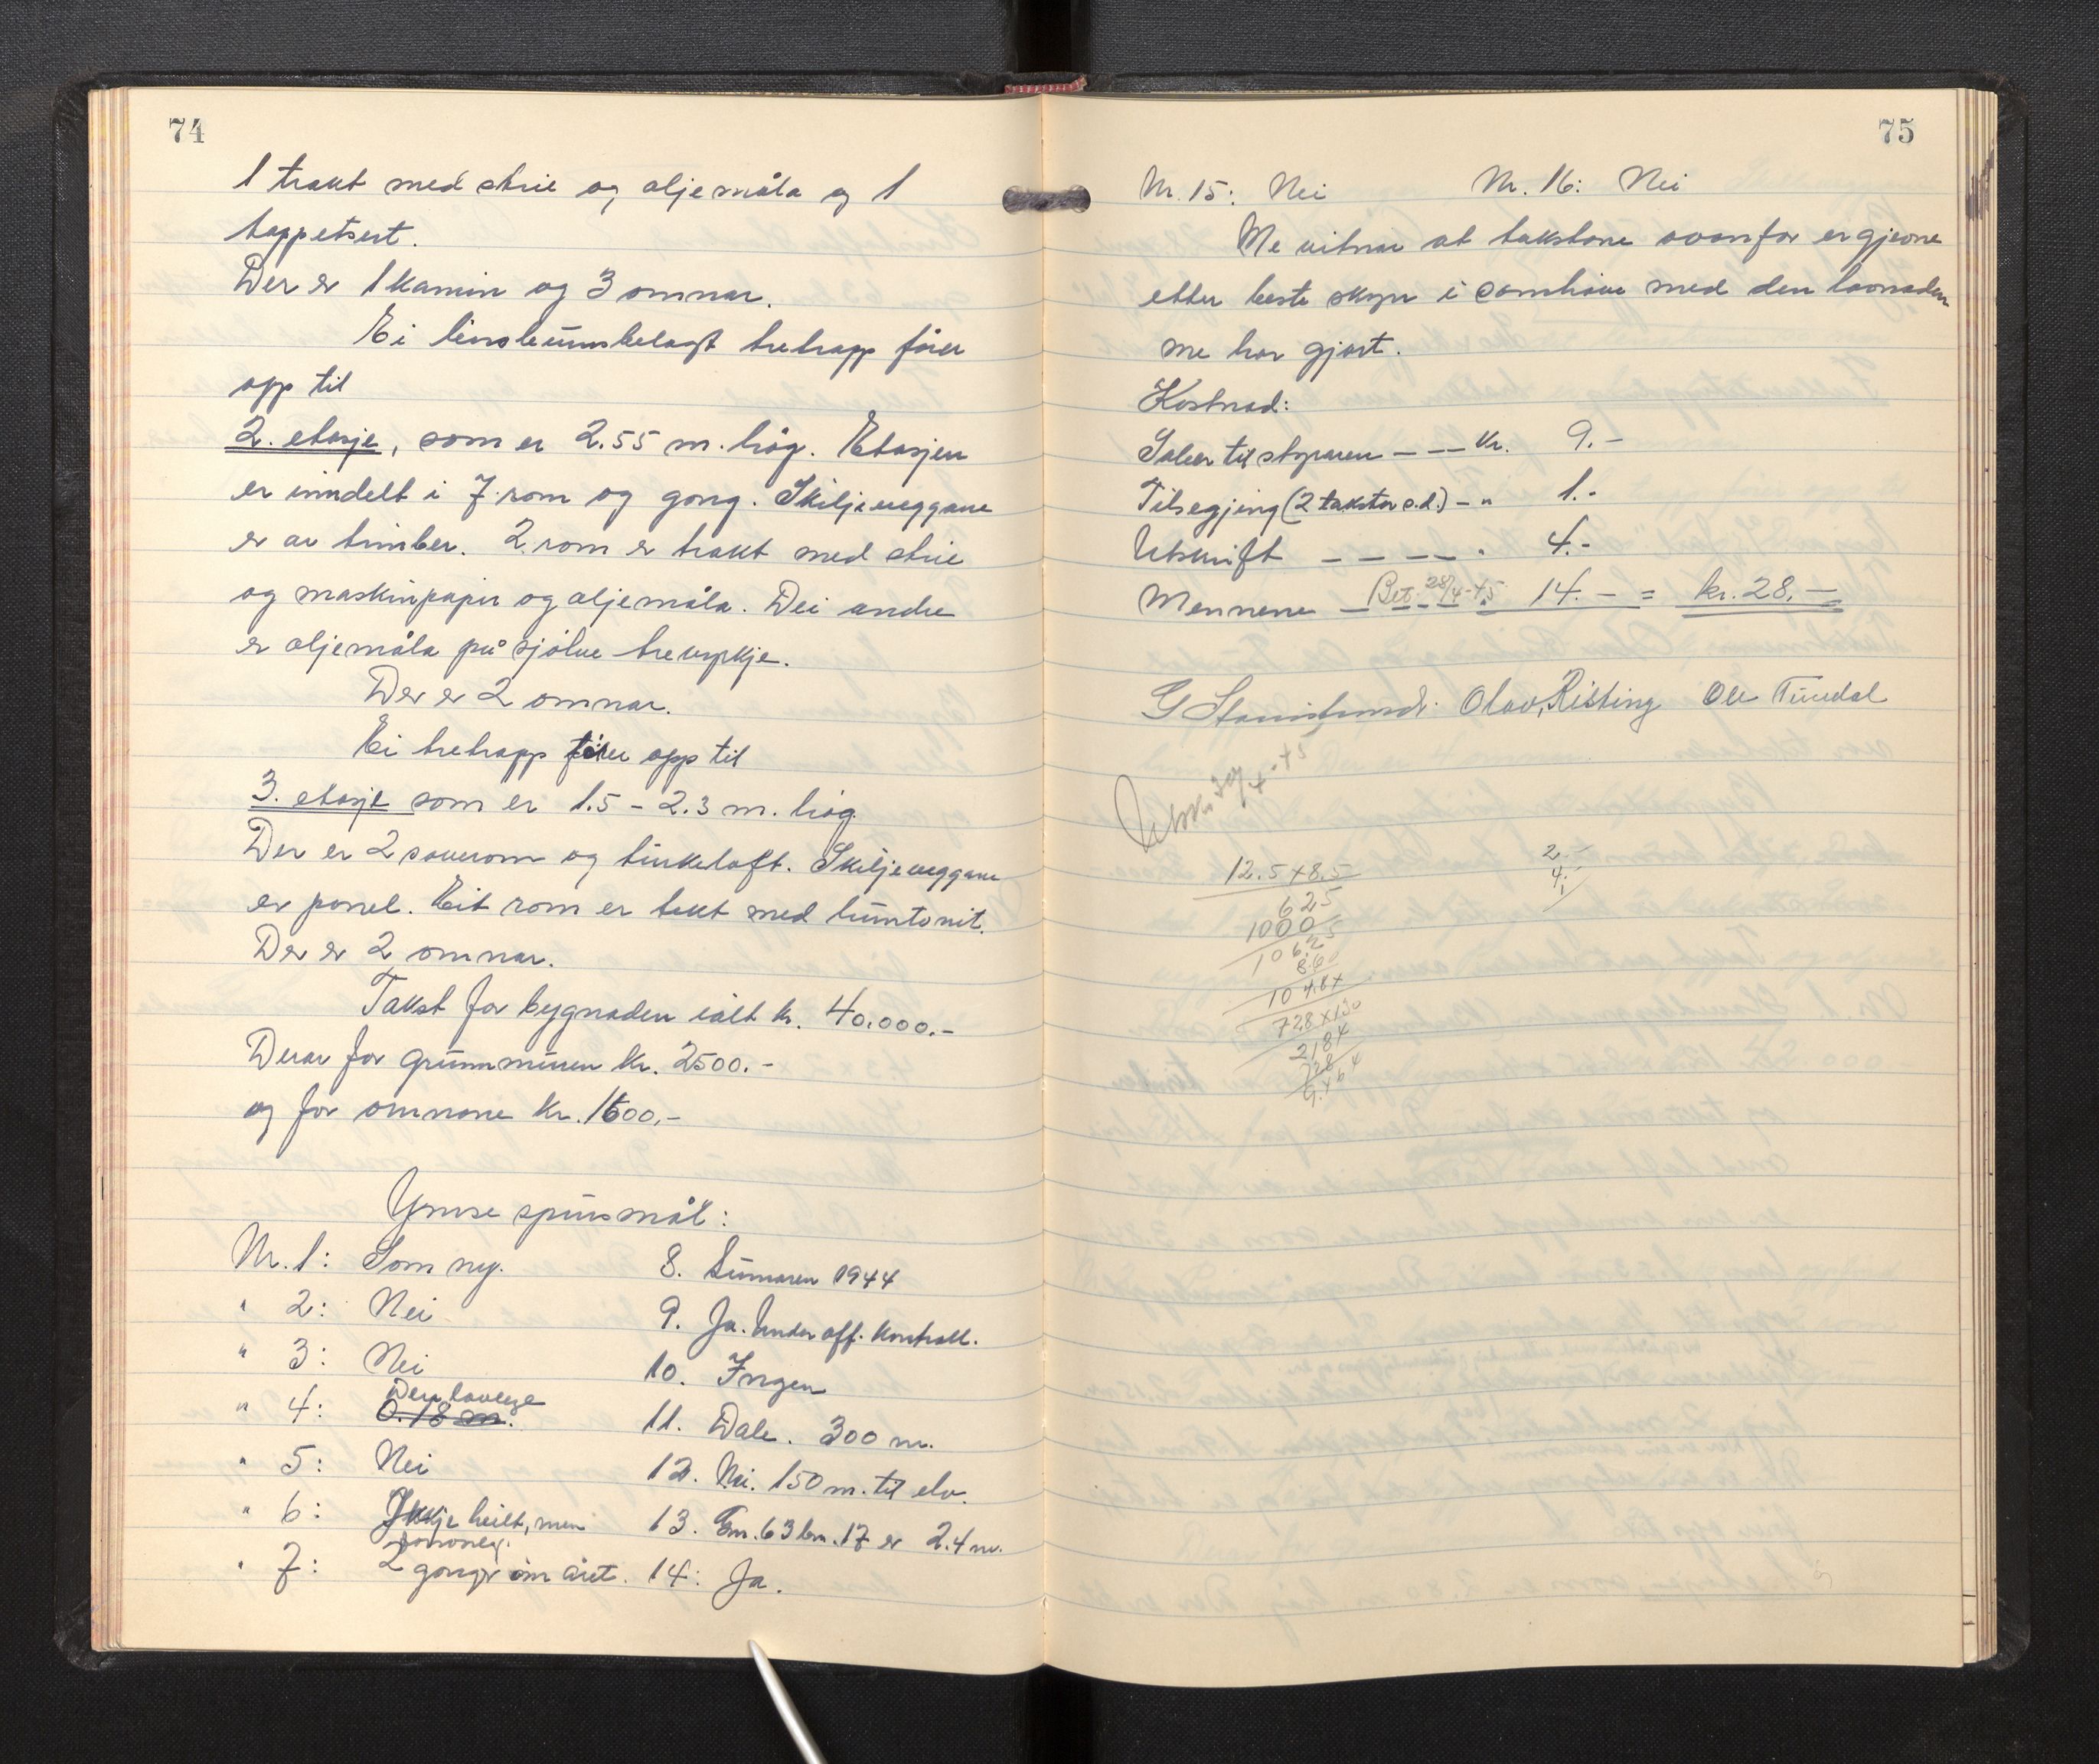 74
1 trukt med strie og oljemåla og 1
tappetsert.
Der er 1 kamin og 3 omnar.
Ei linoleumsbelagt tretrapp fører
opp til
2. etasje, som er 2.55 m. høg. Etasjen
er inndelt i 7 rom og gang. Skiljeveggane
er av timber. 2 rom er trukt med strie
og maskinpapir og oljemåla. Dei andre
er oljemåla på sjølve trevyrkje.
Der er 2 omnar.
Ei tretrapp fører opp til
3. etasje som er 1.5 - 2.3 m. høg.
Der er 2 soverom og turkeloft. Skiljeveggane
er panel. Eit rom er tekt med huntonit.
Der er 2 omnar.
Takst for bygnaden ialt kr. 40.000.-
Derav for grunnmuren kr. 2500.-
og for omnane kr. 1600,-
Ymse spursmål:
Nr. 1: Som ny.
" 2: Nei
" 3: Nei
" 4: Den lovlege
0.18 m.
" 5: Nei
" 6: Ikkje heilt, men
" 7: 2 gonger om året.
8. Sumaren 1944
9. Ja. Under off. kontroll.
10. Ingen
11. Dale. 300 m.
12. Nei. 150 m. til elv.
13. Gn. 63 bn. 17 er 2.4 m.
14: Ja.
75
Nr. 15: Nei Nr. 16: Nei
Me vitnar at takstane ovanfor er gjevne
etter beste skyn i samhøve med den lovnaden
me har gjort.
Kostnad:
Salær til styraren - - - kr. 9.-
Tilsegjing (2 takstar s.d.) - " 1.-
Utskrift - - - - - " 4.-
Mennene - - - - - 14.- = kr. 28.-
Bet. 28/4-45
Olav Risting Ole Tuedal
12.5 x 8.5
625
1000
106.25
728 x 130
2184
728
2.-
4.-